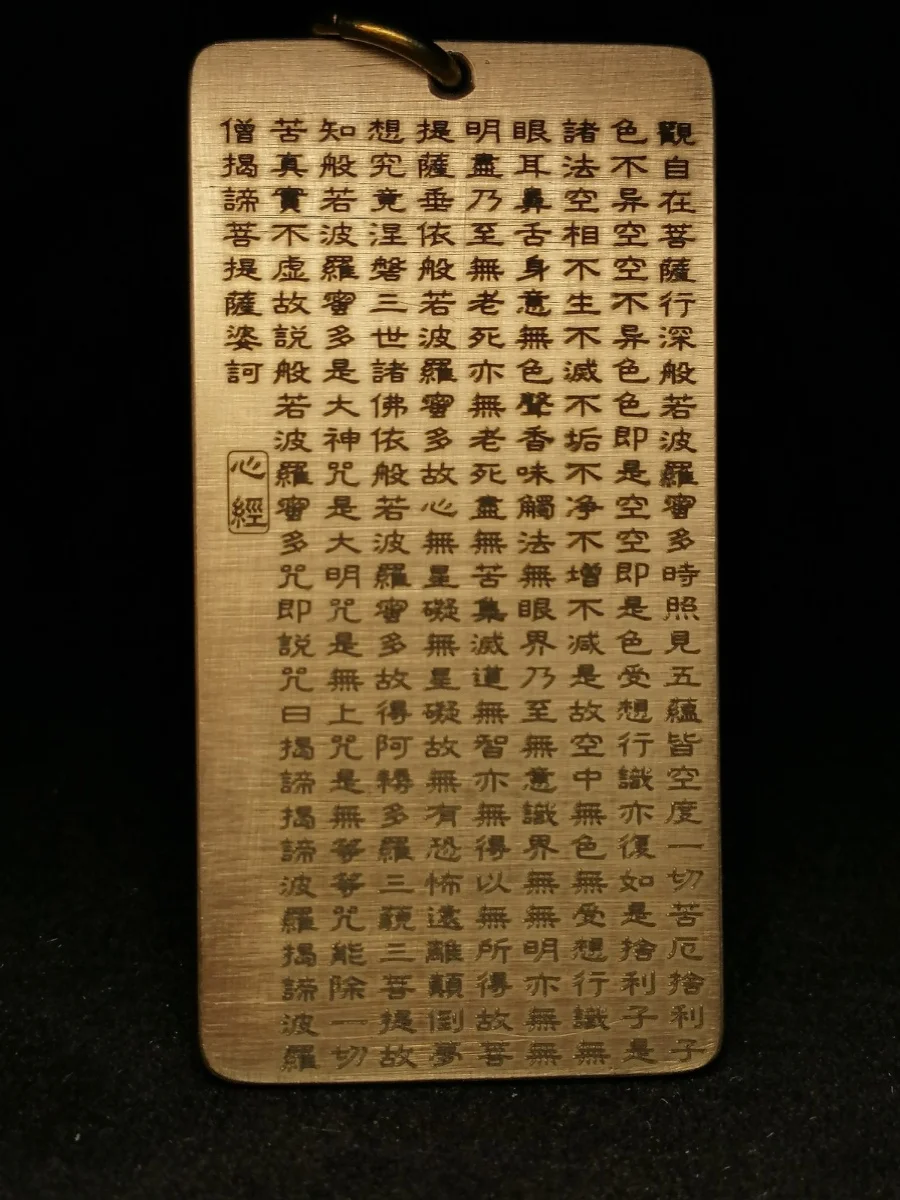 觀自在菩薩行深般若波羅蜜多時照見五蘊皆空度一切苦厄捨利子
色不异空空不异色色即是空空即是色受想行識亦復如是捨利子是
諸法空相不生不滅不垢不净不增不减是故空中無色無受想行識無
眼耳鼻舌身意無色聲香味觸法無眼界乃至無意識界無無明亦無無
明盡乃至無老死亦無老死盡無苦集滅道無智亦無得以無所得故菩
提薩垂依般若波羅蜜多故心無星礙無星礙故無有恐怖遠離顛倒夢
想究竟涅磐三世諸佛依般若波羅蜜多故得阿耨多羅三藐三菩提故
知般若波羅蜜多是大神咒是大明咒是無上咒是無等等咒能除一切
苦真實不虛故説般若波羅蜜多咒即説咒曰揭諦揭諦波羅揭諦波羅
僧揭諦菩提薩婆訶
心經